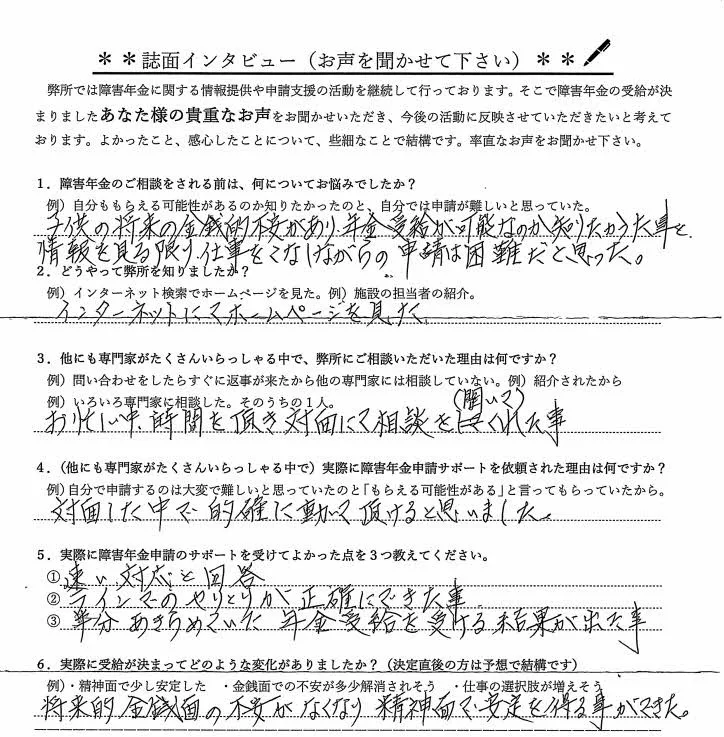 ＊＊誌面インタビュー（お声を聞かせて下さい）＊＊
弊所では障害年金に関する情報提供や申請支援の活動を継続して行っております。そこで障害年金の受給が決
まりましたあなた様の貴重なお声をお聞かせいただき、今後の活動に反映させていただきたいと考えて
おります。よかったこと、感心したことについて、些細なことで結構です。率直なお声をお聞かせ下さい。
1．障害年金のご相談をされる前は、何についてお悩みでしたか？
例）自分ももらえる可能性があるのか知りたかったのと、自分では申請が難しいと思っていた。
子供の将来の金銭的不安があり、年金受給が可能なのか知りたかった事と、
情報を見る限り仕事をこなしながらの申請は困難だと思った。
2．どうやって弊所を知りましたか？
例）インターネット検索でホームページを見た。例）施設の担当者の紹介。
インターネットにてホームページを見た
3．他にも専門家がたくさんいらっしゃる中で、弊所にご相談いただいた理由は何ですか？
例）問い合わせをしたらすぐに返事が来たから他の専門家には相談していない。例）紹介されたから
例）いろいろ専門家に相談した。そのうちの1人。
(聞いて)
お忙しい中、時間を頂き対面にて相談をくれた事
4．（他にも専門家がたくさんいらっしゃる中で）実際に障害年金申請サポートを依頼された理由は何ですか？
例）自分で申請するのは大変で難しいと思っていたのと「もらえる可能性がある」と言ってもらっていたから。
対面した中で的確に動いて頂けると思いました。
5．実際に障害年金申請のサポートを受けてよかった点を３つ教えてください。
①速い対応と回答
②ラインでのやりとりが正確にできた事
③半分あきらめていた年金受給を受ける結果が出た事
6．実際に受給が決まってどのような変化がありましたか？（決定直後の方は予想で結構です）
例）・精神面で少し安定した　・金銭面での不安が多少解消されそう　・仕事の選択肢が増えそう
将来的金銭面の不安がなくなり精神面で安定を得る事ができた。